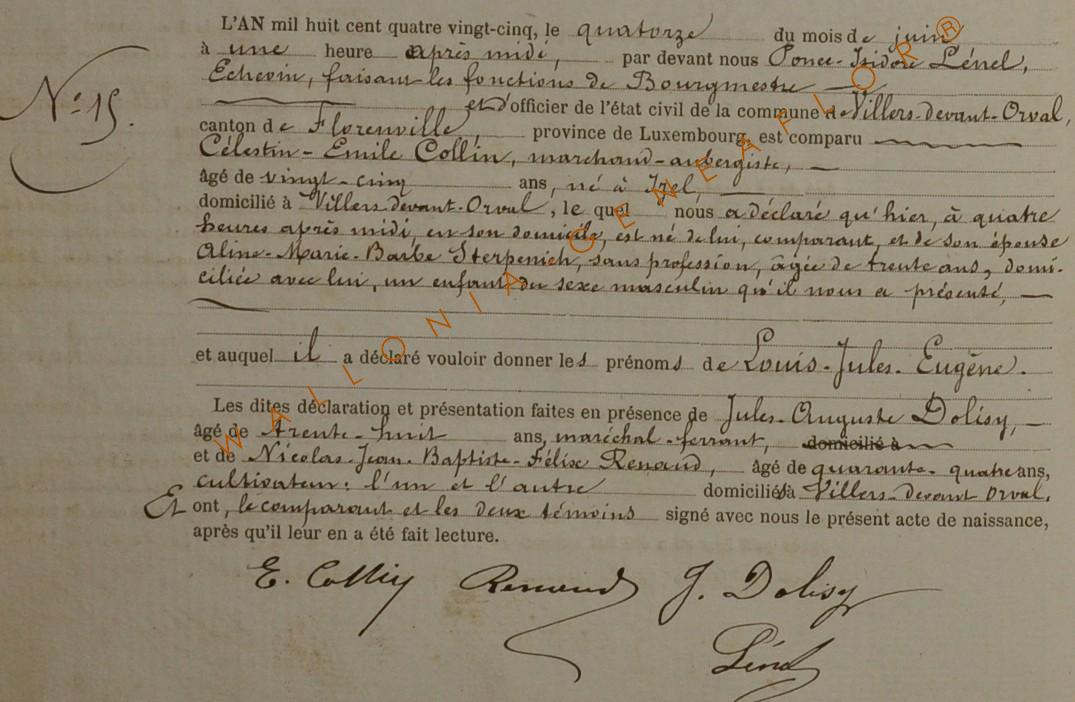 L'AN mil huit cent quatre vingt-cinq, le quatorze du mois de juin
à une heure après midi, par devant nous Ponce-Isidore Lénel,
Echevin, faisant les fonctions de Bourgmestre
N° 15.
et d'officier de l'état civil de la commune de Villers-devant-Orval,
canton de Florenville, province de Luxembourg, est comparu
Célestin-Emile Collin, marchand-aubergiste,
âgé de vingt-cinq ans, né à Izel,
domicilié à Villers-devant-Orval, le quel nous a déclaré qu'hier, à quatre
heures après midi, en son domicile, est né de lui, comparant, et de son épouse
Aline-Marie-Barbe Sterpenich, sans profession, âgée de trente ans, domi-
ciliée avec lui, un enfant du sexe masculin qu'il nous a présenté,
et auquel il a déclaré vouloir donner les prénoms de Louis-Jules-Eugène.
Les dites déclaration et présentation faites en présence de Jules-Auguste Dolisy,
âgé de trente-huit ans, maréchal-ferrant, domicilié à
et de Nicolas-Jean-Baptiste-Félix Renaud, âgé de quarante-quatre ans,
cultivateur; l'un et l'autre domiciliés à Villers-devant Orval.
Et ont, le comparant et les deux témoins signé avec nous le présent acte de naissance,
après qu'il leur en a été fait lecture.
E. Collin Renaud J. Dolisy
Lénel
WALLONIA GENEAFLOR®